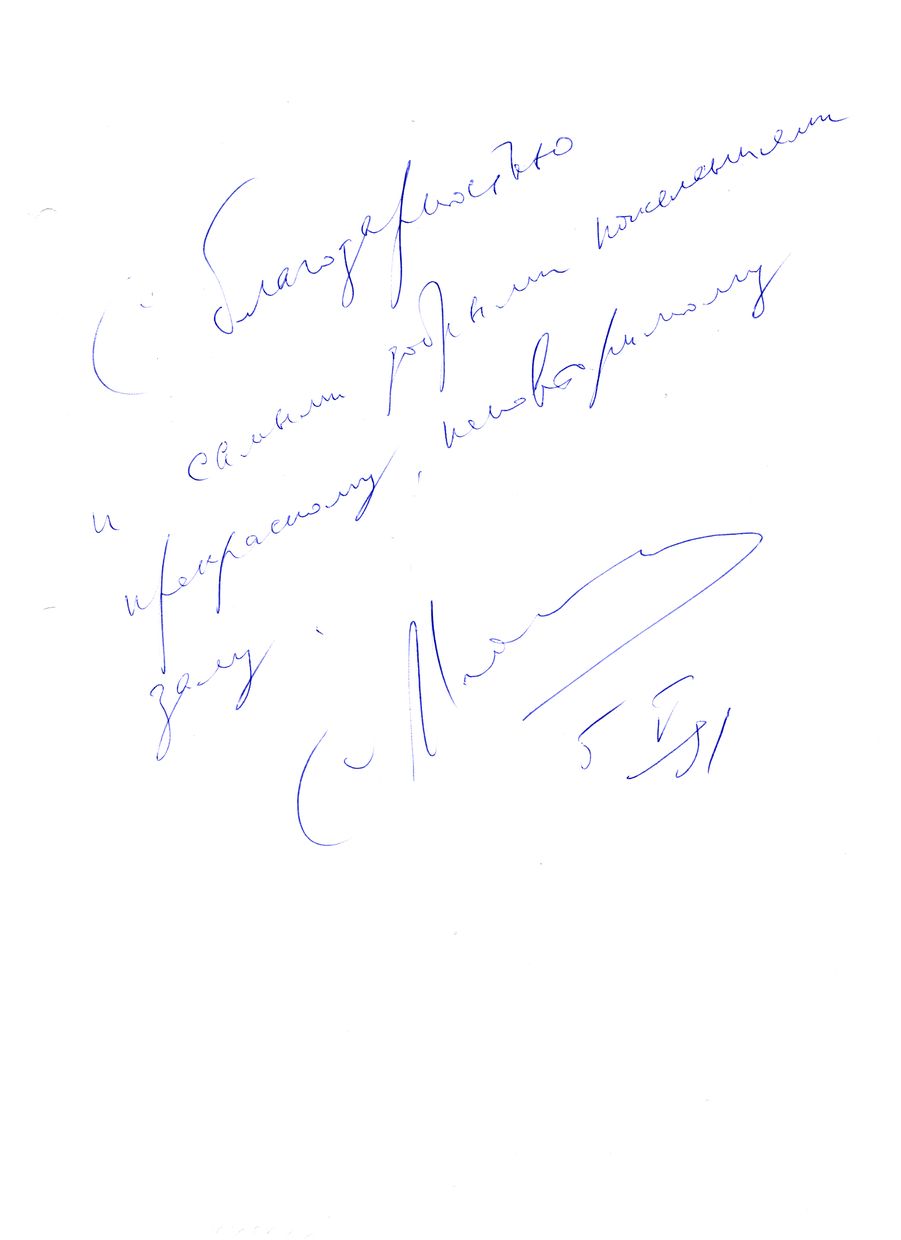 С благодарностью
и самыми добрыми пожеланиями
прекрасному, неповторимому
залу.
5 V 91